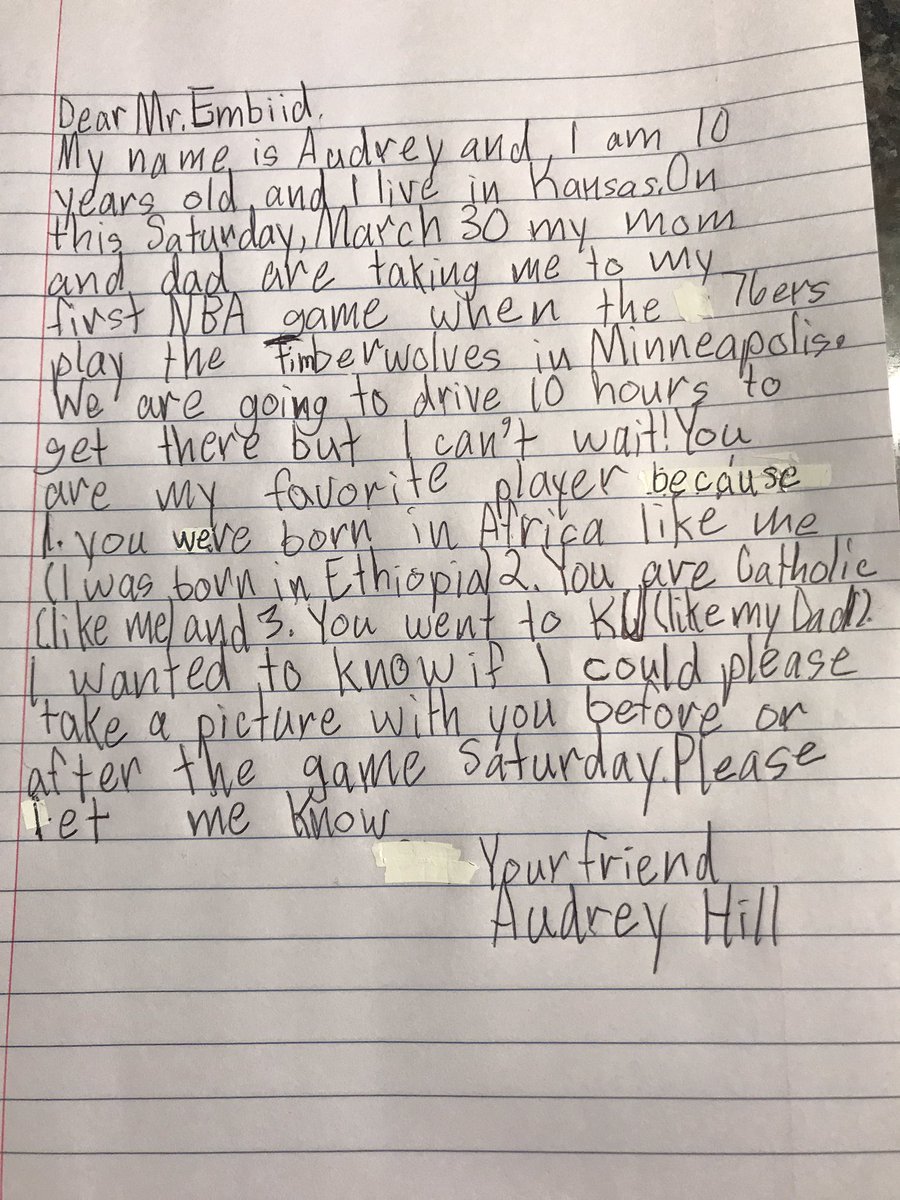 Dear Mr. Embiid.
My name is Audrey and I am 10
years old and I live in Kansas. On
this Saturday, March 30 my mom
and dad are taking me to my
first NBA game when the 76ers
play the Timberwolves in Minneapolis.
We are going to drive 10 hours to
get there but I can't wait! You
are my favorite player because
1. you were born in Africa like me
(I was born in Ethiopia) 2. You are Catholic
(like me) and 3. You went to KU (like my Dad!).
I wanted to know if I could please
take a picture with you before or
after the game Saturday. Please
let me know
Your friend
Audrey Hill